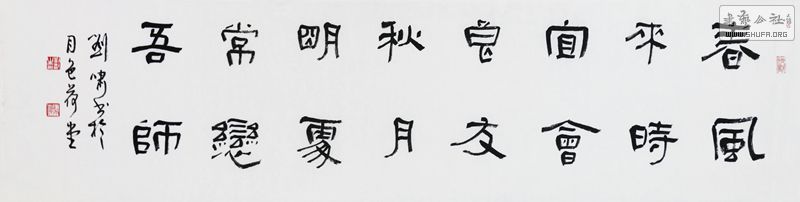 春風
來時
宜會
良友
秋月
明處
常戀
吾師
書於
月色荷堂
書藝公社
WWW.SHUFA.ORG